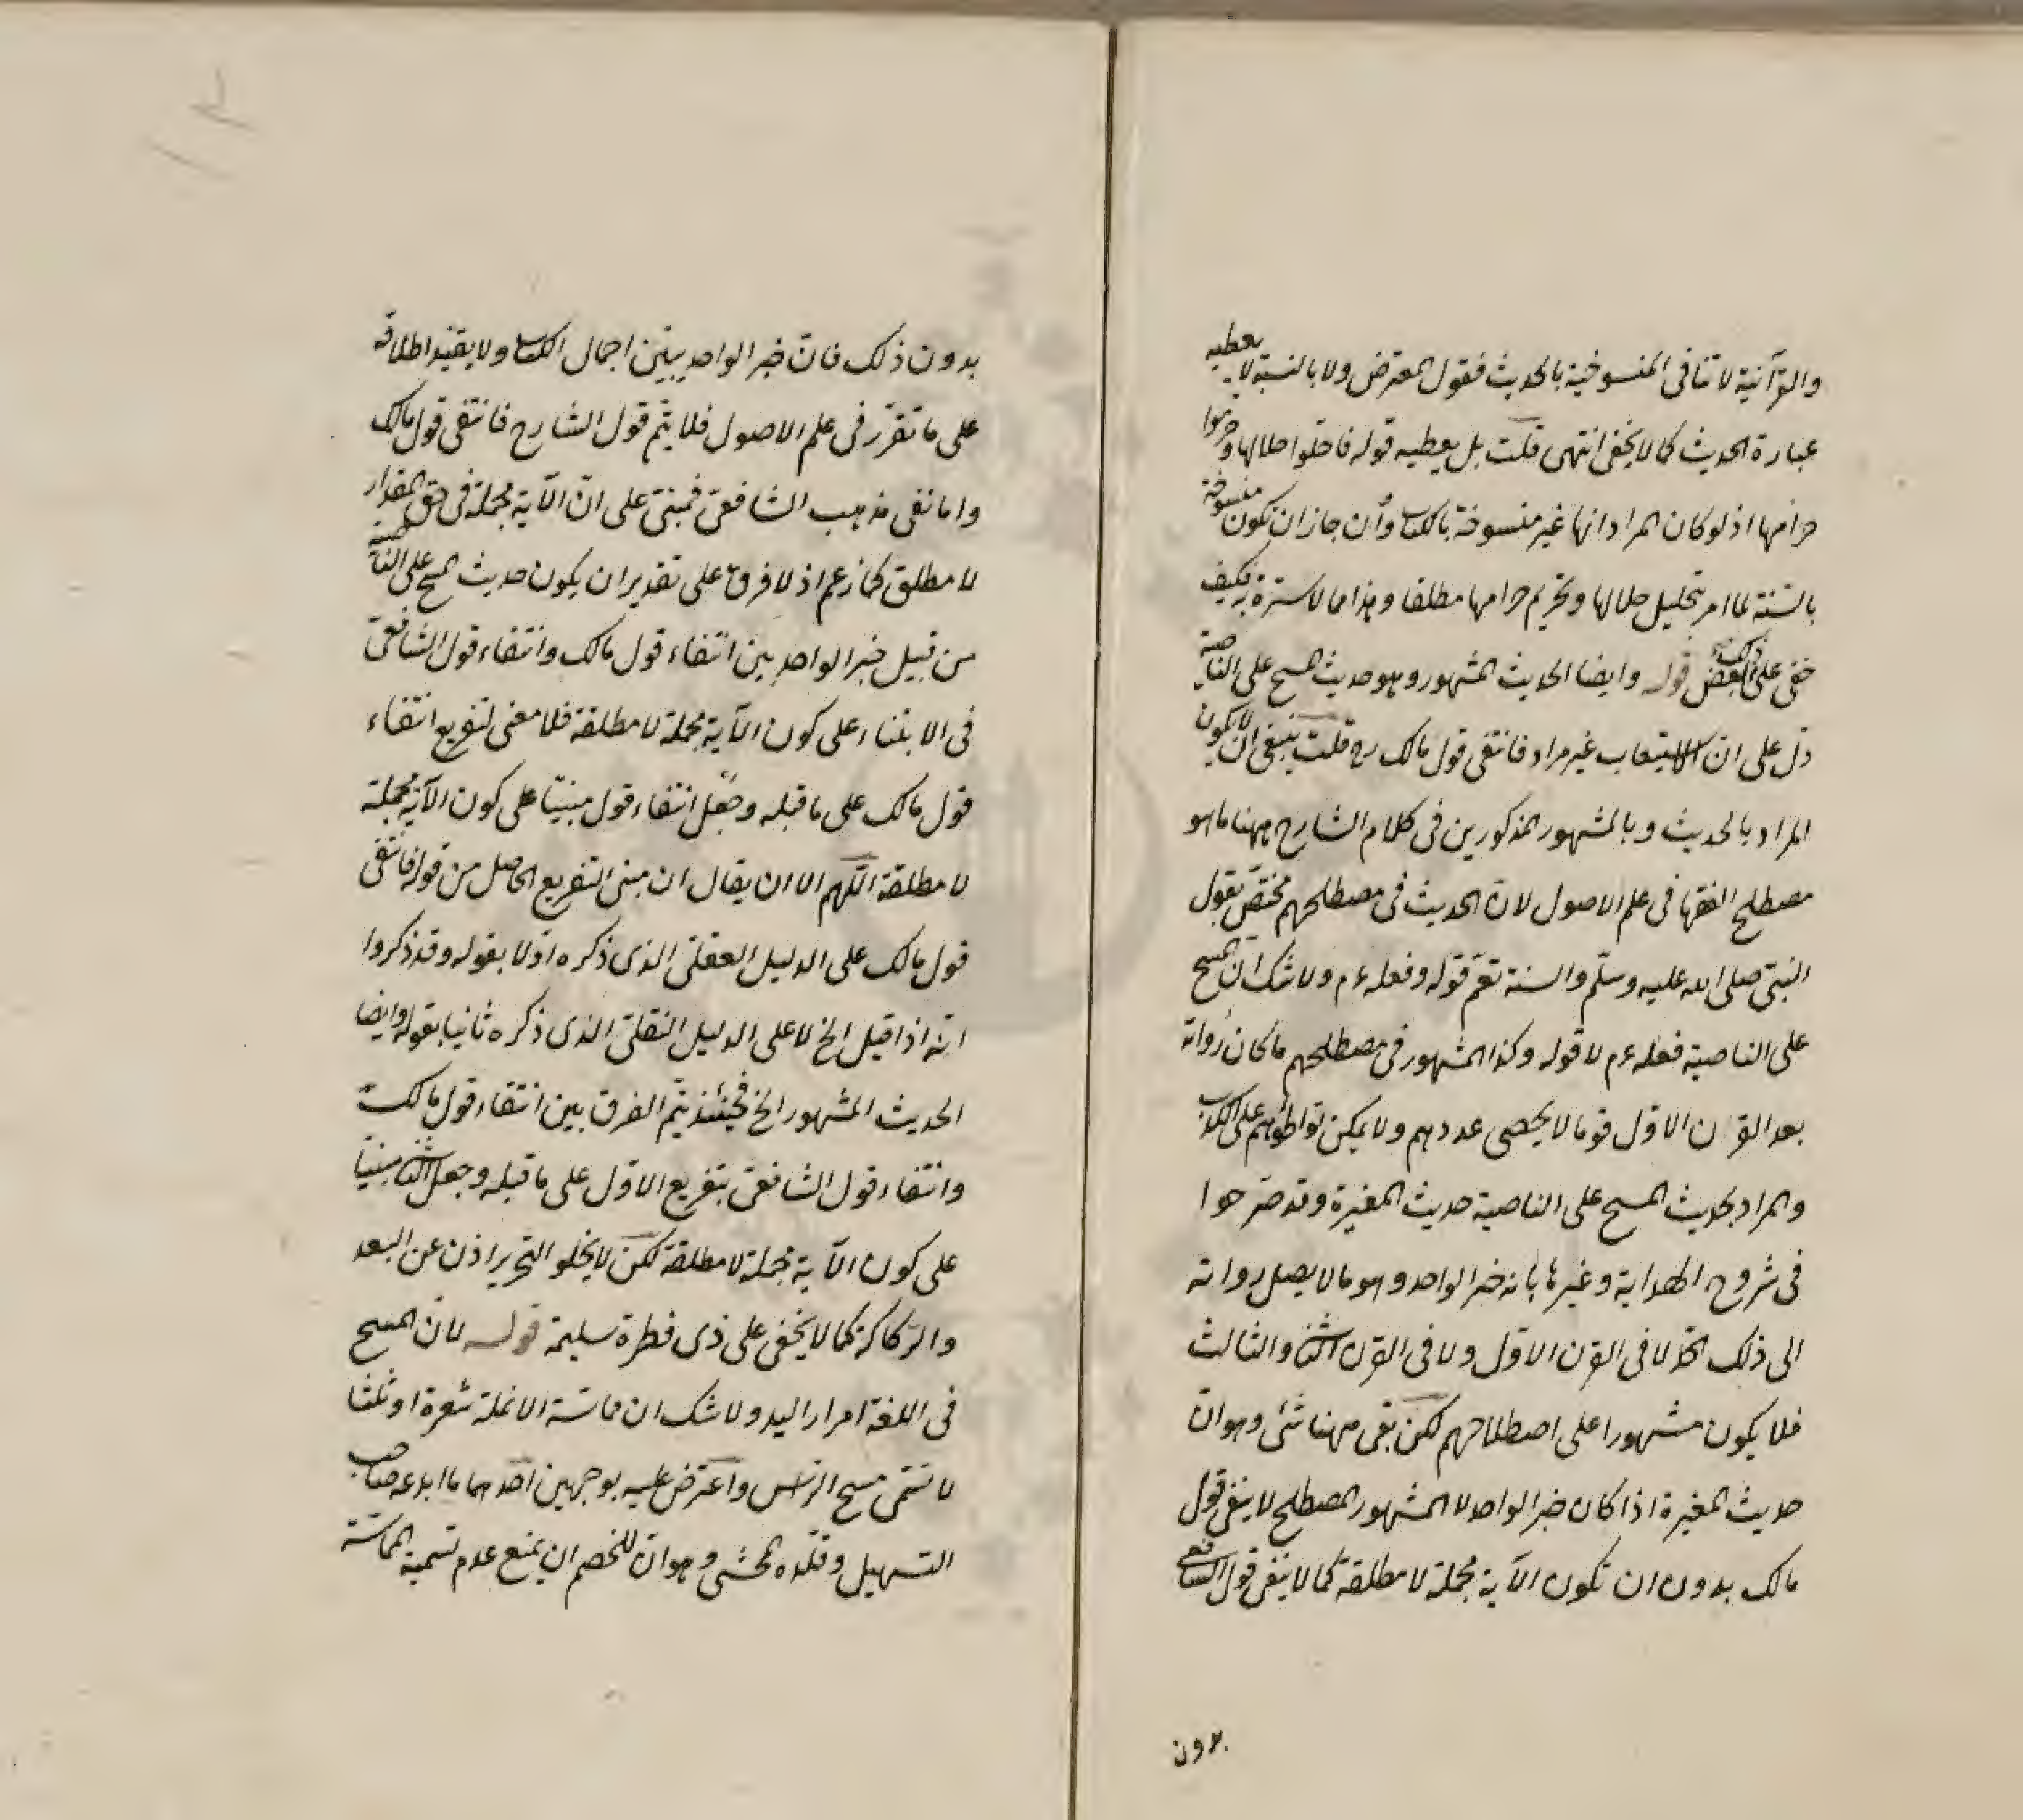 والقرآنية لا تنافى المنسوخية بالحديث فقول المعترض ولا بالنسبة لا يعطيه
عبارة الحديث كما لا يخفى انتهى قلت بل يعطيه قوله فاحلوا حلالها وحرموا
حرامها اذ لو كان المراد انها غير منسوخة بالكتاب وأن جاز ان تكون منسوخة
بالسنة لما امر بتحليل حلالها وتحريم حرامها مطلقا وهذا مما لا سترة به فكيف
خفى على ذلك البعض قوله وايضا الحديث المشهور وهو حديث المسح على الناصية
دل على ان الاستيعاب غير مراد فانتفى قول مالك رح قلت ينبغى ان لا يكون
المراد بالحديث وبالمشهور المذكورين فى كلام الشارح ههنا ما هو
مصطلح الفقها فى علم الاصول لان الحديث فى مصطلحهم مختص بقول
النبى صلى الله عليه وسلم والسنة تعم قوله وفعله ءم ولا شك ان المسح
على الناصية فعله ءم لا قوله وكذا المشهور فى مصطلحهم ما كان رواته
بعد القرن الاول قوما لا يحصى عددهم ولا يمكن تواطؤهم على الكذب
والمراد بحديث المسح على الناصية حديث المغيرة وقد صرحوا
فى شروح الهداية وغيرها بانه خبر الواحد وهو ما لا يصل رواته
الى ذلك الحد لا فى القرن الاول ولا فى القرن الثانى والثالث
فلا يكون مشهورا على اصطلاحهم لكن بقى ههنا شئ وهو ان
حديث المغيرة اذا كان خبر الواحد لا المشهور المصطلح لا ينفى قول
مالك بدون ان تكون الآية مجملة لا مطلقة كما لا ينفى قول الشافعى
بدون
بدون ذلك فان خبر الواحد يبين اجمال الكتاب ولا يقيد اطلاقه
على ما تقرر فى علم الاصول فلا يتم قول الشارح فانتفى قول مالك
واما نفى مذهب الشافعى فمبنى على ان الآية مجملة فى حق المقدار
لا مطلق كما زعم اذ لا فرق على تقدير ان يكون حديث المسح على الناصية
من قبيل خبر الواحد بين انتفاء قول مالك وانتفاء قول الشافعى
فى الابتناء على كون الآية مجملة لا مطلقة فلا معنى لتفريع انتفاء
قول مالك على ما قبله وجعل انتفاء قول مبنيا على كون الآية مجملة
لا مطلقة اللهم الا ان يقال ان مبنى التفريع الحاصل من قوله فانتفى
قول مالك على الدليل العقلى الذى ذكره اولا بقوله وقد ذكروا
انه اذا قيل الخ لا على الدليل النقلى الذى ذكره ثانيا بقوله وايضا
الحديث المشهور الخ فحينئذ يتم الفرق بين انتفاء قول مالك
وانتفاء قول الشافعى بتفريع الاول على ما قبله وجعل الثانى مبنيا
على كون الآية مجملة لا مطلقة لكن لا يخلو التحرير اذن عن البعد
والركاكة كما لا يخفى على ذى فطرة سليمة قوله لان المسح
فى اللغة امرار اليد ولا شك ان مماسة الانملة شعرة او ثلثا
لا تسمى مسح الراس واعترض عليه بوجهين احدهما ما ابدعه صاحب
التسهيل وقلده المحشى وهو ان للخصم ان يمنع عدم تسمية المماسة